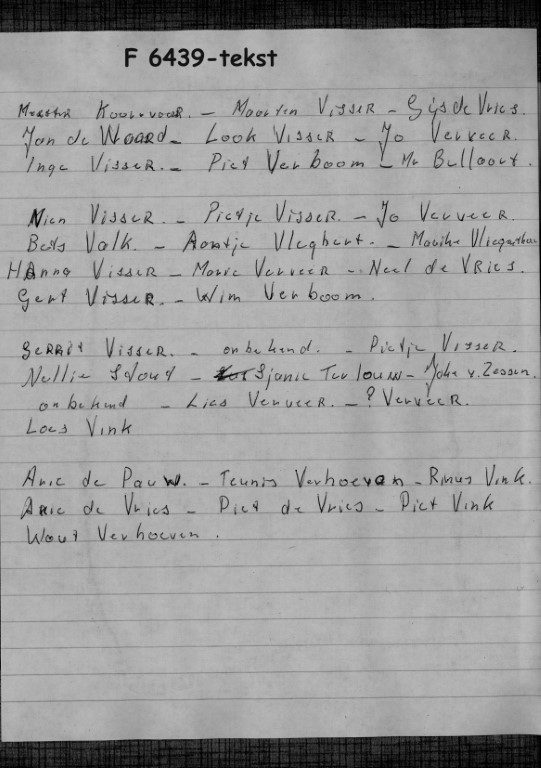 F 6439-tekst
Meester - Maarten VisseR - Gijs de Vries.
Jan de Waard - Look VisseR - Jo VerveeR.
Inge VisseR. - Piet Verboom - Mr Bullaart.
Nien VisseR. - Pietje VisseR. - Jo VerveeR.
Bets Valk. - Aantje Vlegbert. - Marike
HAnna VisseR - Marie VerveeR - Neel de VRies.
Gert VisseR. - Wim Verboom.
GeRRit VisseR. - onbekend. - Pietje VisseR.
Nellie Stout - Sjanie Terlouw - Joke v. Zessen.
onbekend - Lies VerveeR. - ? VerveeR.
Loes Vink
Arie de Pauw. - Teunis Verhoeven - Rinus Vink.
Arie de Vries - Piet de Vries - Piet Vink
Wout Verhoeven.